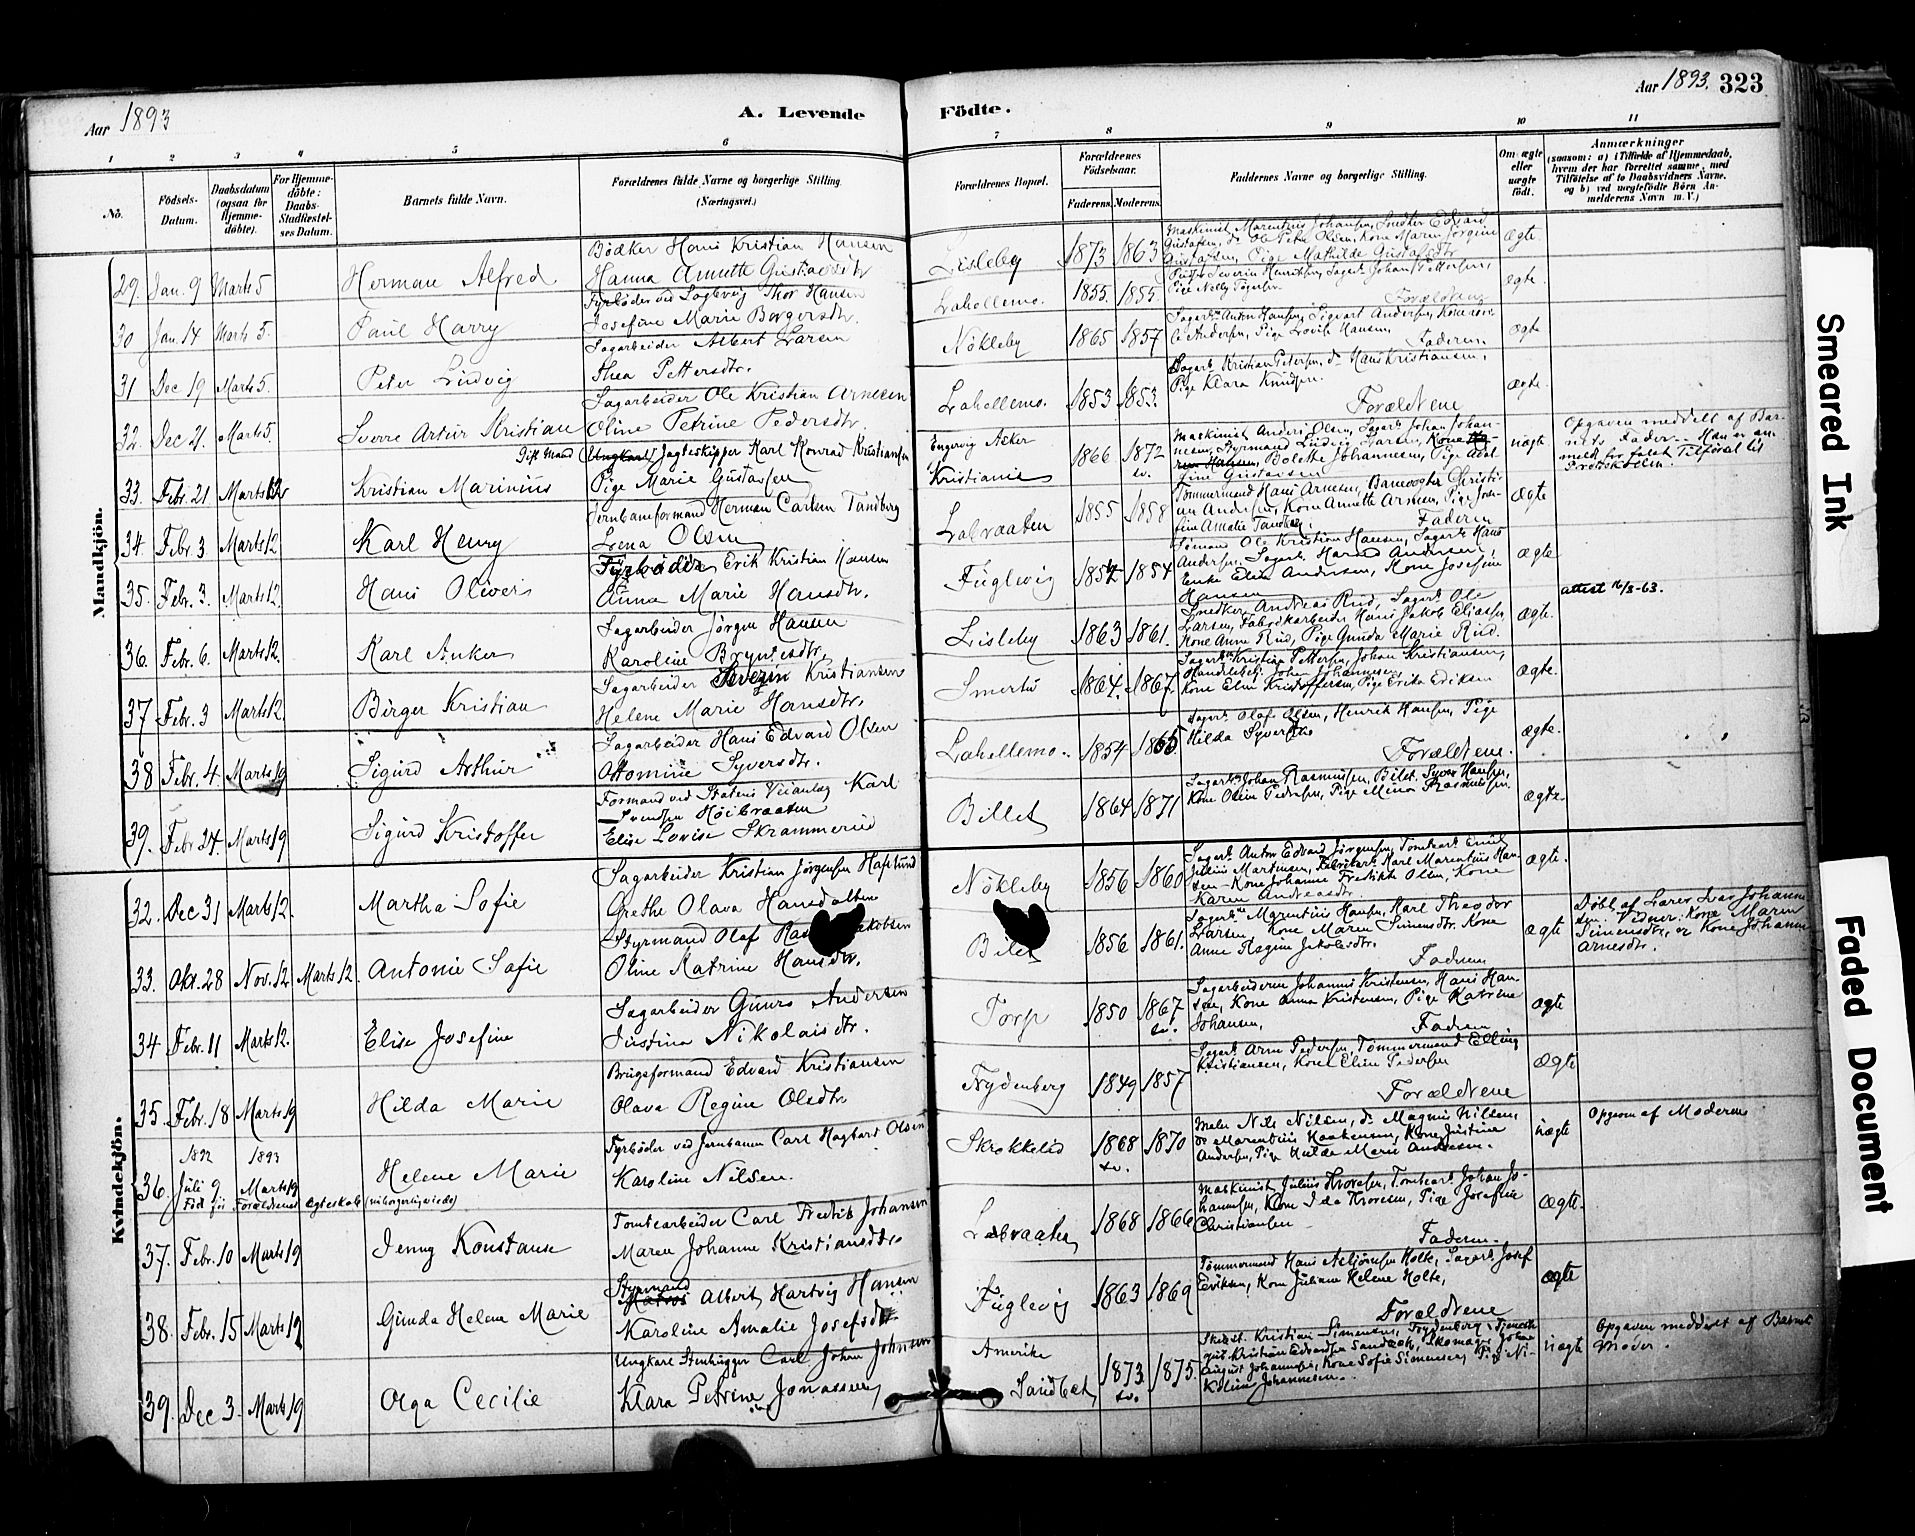 Aar 1893
A. Levende
Födte.
Aar 1893. 323
1 2 3 4 5 6 7 8 9 10 11
No.
Födsels-Datum.
Daabsdatum (ogsaa for Hjemme-döbte).
For Hjemme-döbte: Daabs-Stadfæstel-ses Datum.
Barnets fulde Navn.
Forældrenes fulde Navne og borgerlige Stilling. (Næringsvei.)
Forældrenes Bopæl.
Forældrenes Födselsaar.
Faderens. Moderens.
Faddernes Navne og borgerlige Stilling.
Om ægte eller uægte födt.
Anmærkninger
(saasom: a) i Tilfælde af Hjemmedaab, hvem der har forrettet samme, med Tilföielse af to Daabsvidners Navne. og b) ved uægtefödte Börn An-melderens Navn m. V.)
Mandkjön.
Bødker Hans Kristian Hansen
29. Jan. 9 Marts 5 Herman Alfred Hanna Annette Gustavsdtr Lisleby 1873 1863 ægte.
Maskinist Marentius Johansen, Snedker Edvard Gustafsen, do Ole Peter Olsen, Kone Maren Jørgine Gustafsen, Pige Mathilde Gustafsdtr
Fyrbøder ved Sagbrug Thor Hansen
30 Jan. 14 Marts 5. Paul Harry Josefine Marie Borgersdtr. Lahellemo. 1855. 1855. ægte.
Severin Henriksen, Sagarb. Johan Pettersen, Pige Nelly
Forældrene
Sagarbeider Albert Larsen
31 Dec 19 Marts 5. Peter Ludvig Thea Pettersdtr. Nøkleby 1865 1857 ægte
Sagarb. Anton Hansen, Sigvart Andersen, Kone Andersen, Pige Lovise Hansen
Faderen.
Sagarbeider Ole Kristian Arnesen
32. Dec 21. Marts 5. Sverre Artur Kristian Oline Petrine Pedersdtr. Lahellemo. 1853 1853. ægte.
Sagarb. Kristian Petersen, do Hans Kristiansen, Pige Klara Knudsen.
Forældrene
Gift Mand Ungkarl Jagteskipper Karl Konrad Kristiansen
33. Febr. 21 Marts 12 Kristian Marinius Pige Marie Gustavsen Engervig Asker Kristiania 1866 1872 sv. uægte
Maskinist Anders Olsen, Sagarb. Johan Johannesen, Styrmand Ludvig Larsen, Kone Hansen, Bolette Johannesen, Pige Gustavsen
Opgaven meddelt af Barnets Fader
Jernbaneformand Herman Carlsen Tandberg
34. Febr. 3 Marts 12 Karl Henry Lena Olsen Labraaten 1855 1858 ægte
Tømmermand Hans Arnesen, Banevogter Christian Andersen, Kone Annette Arnesen, Pige Josefine Amalie Tandberg.
Faderen
Fyrbøder Erik Kristian Hansen
35. Febr. 3. Marts 12. Hans Oliver Anna Marie Hansdtr. Fuglevig 1852 1854 ægte
Sømand Ole Kristian Hansen, Sagarb. Hans Andersen, Sagarb. Harald Andersen, Enke Elen Andersen, Kone Josefine Hansen
attest 16/3-63.
Sagarbeider Jørgen Hansen
36. Febr. 6. Marts 12. Karl Anker Karoline Bryntesdtr. Lisleby 1863 1861. ægte.
Snedker Andreas Rud, Sagarb. Ole Larsen, Fabrikarbeider Hans Jakob Eliassen, Kone Anne Rud, Pige Gunda Marie Rud.
Sagarbeider Severin Kristiansen
37 Febr. 3 Marts 12. Birger Kristian Helene Marie Hansdtr. Smertu 1864. 1867. ægte.
Sagarb. Kristian Pettersen, Johan Kristiansen, Handelsbetj. Johan Johannesen, Kone Elin Kristoffersen, Pige Erika Eriksen
Sagarbeider Hans Edvard Olsen
38 Febr. 4. Marts 19 Sigurd Arthur Ottomine Syversdtr. Lahellemo. 1854 1855 ægte.
Sagarb. Olaf Olsen, Henrik Hansen, Pige Hilda Syversen
Forældrene.
Formand ved Statens Veianlæg Karl Svendsen Høibraaten
39. Febr 24. Marts 19 Sigurd Kristoffer Elise Lovise Skrammerud Billet 1864 1871 ægte.
Sagarb. Johan Rasmussen, Bilet. Syver Hansen, Kone Oline Pedersen, Pige Mina Rasmussen.
Kvindekjön.
Sagarbeider Kristian Jørgensen Hafslund
32. Dec 31 Marts 12. Martha Sofie Grethe Olava Hansdatter Nøkleby 1856 1860 ægte.
Sagarb. Anton Edvard Jørgensen, Tomtearb. Emil Julius Martinsen, Fabrikarb. Karl Marentius Hansen - Kone Johanne Fredrikke Olsen, Kone Karen Andreasdtr
Styrmand Olaf Jakobsen
33. Okt. 28 Nov. 12 Marts 12. Antonie Sofie Oline Katrine Hansdtr. Bilet 1856 1861. ægte
Sagarb. Marentius Hansen, Karl Theodor Larsen, Kone Maren Simensdtr. Kone Anne Ragine Jakobsdtr.
Faderen
Døbt af Lærer Ivar Johannesen. Vidner: Kone Maren Simensdtr. og Kone Johanne Arnesdtr.
Sagarbeider Gunro Andersen
34 Febr. 11 Marts 12. Elise Josefine Justina Nikolaisdtr. Torp 1850 1867 sv. ægte
Sagarbeiderne Johannes Kristensen, Hans Hansen, Kone Anna Kristensen, Pige Katrine Johansen,
Faderen
Brugsformand Edvard Kristiansen
35. Febr. 18 Marts 19 Hilda Marie Olava Regine Olsdtr. Frydenberg 1849 1857 ægte
Sagarb. Arne Pedersen, Tømmermand Elling Kristiansen, Kone Eline Pedersen
Forældrene
Fyrbøder ved Jernbanen Carl Hagbart Olsen
1892 1893
36. Juli 9 Marts 19 Helene Marie Karoline Nilsen. Skrokkelid 1868 sv. 1870 uægte
Født før Forældrenes Ægteskab (nu borgerlig viede)
Maler Nils Nilsen, do Magnus Nilsen, do Marentius Haakensen, Kone Justine Andersen, Pige Hulda Marie Andersen.
Opgaven af Moderen
Tomtearbeider Carl Fredrik Johansen
37. Febr. 10 Marts 19 Jenny Konstanse Maren Johanne Kristiansdtr. Labraaten 1868 1866 ægte.
Maskinist Julius Thoresen, Tomtearb. Johan Johannesen, Kone Ida Thoresen, Pige Josefine Christiansen
Faderen.
Styrmand Matros Albert Hartvig Hansen
38. Febr. 15 Marts 19 Gunda Helene Marie Karoline Amalie Josefsdtr Fuglevig 1863 1869 ægte
Tømmermand Hans Asbjørnsen Holte, Sagarb. Josef Eriksen, Kone Juliane Helene Holte,
Forældrene
Ungkarl Stenhugger Carl Johan Johnsen
39. Dec 3. Marts 19 Olga Cecilie Klara Petrine Jonassen Amerika Sandbæk 1873. sv. 1875. uægte
Kristian Simensen, Frydenberg, Kristian Edvardsen Sandbæk, Skomager Johan August Johannesen, Kone Sofie Simensen, Pige Nikoline Johannesen.
Opgaven meddelt af Barnets Moder.
Smeared Ink
Faded Document